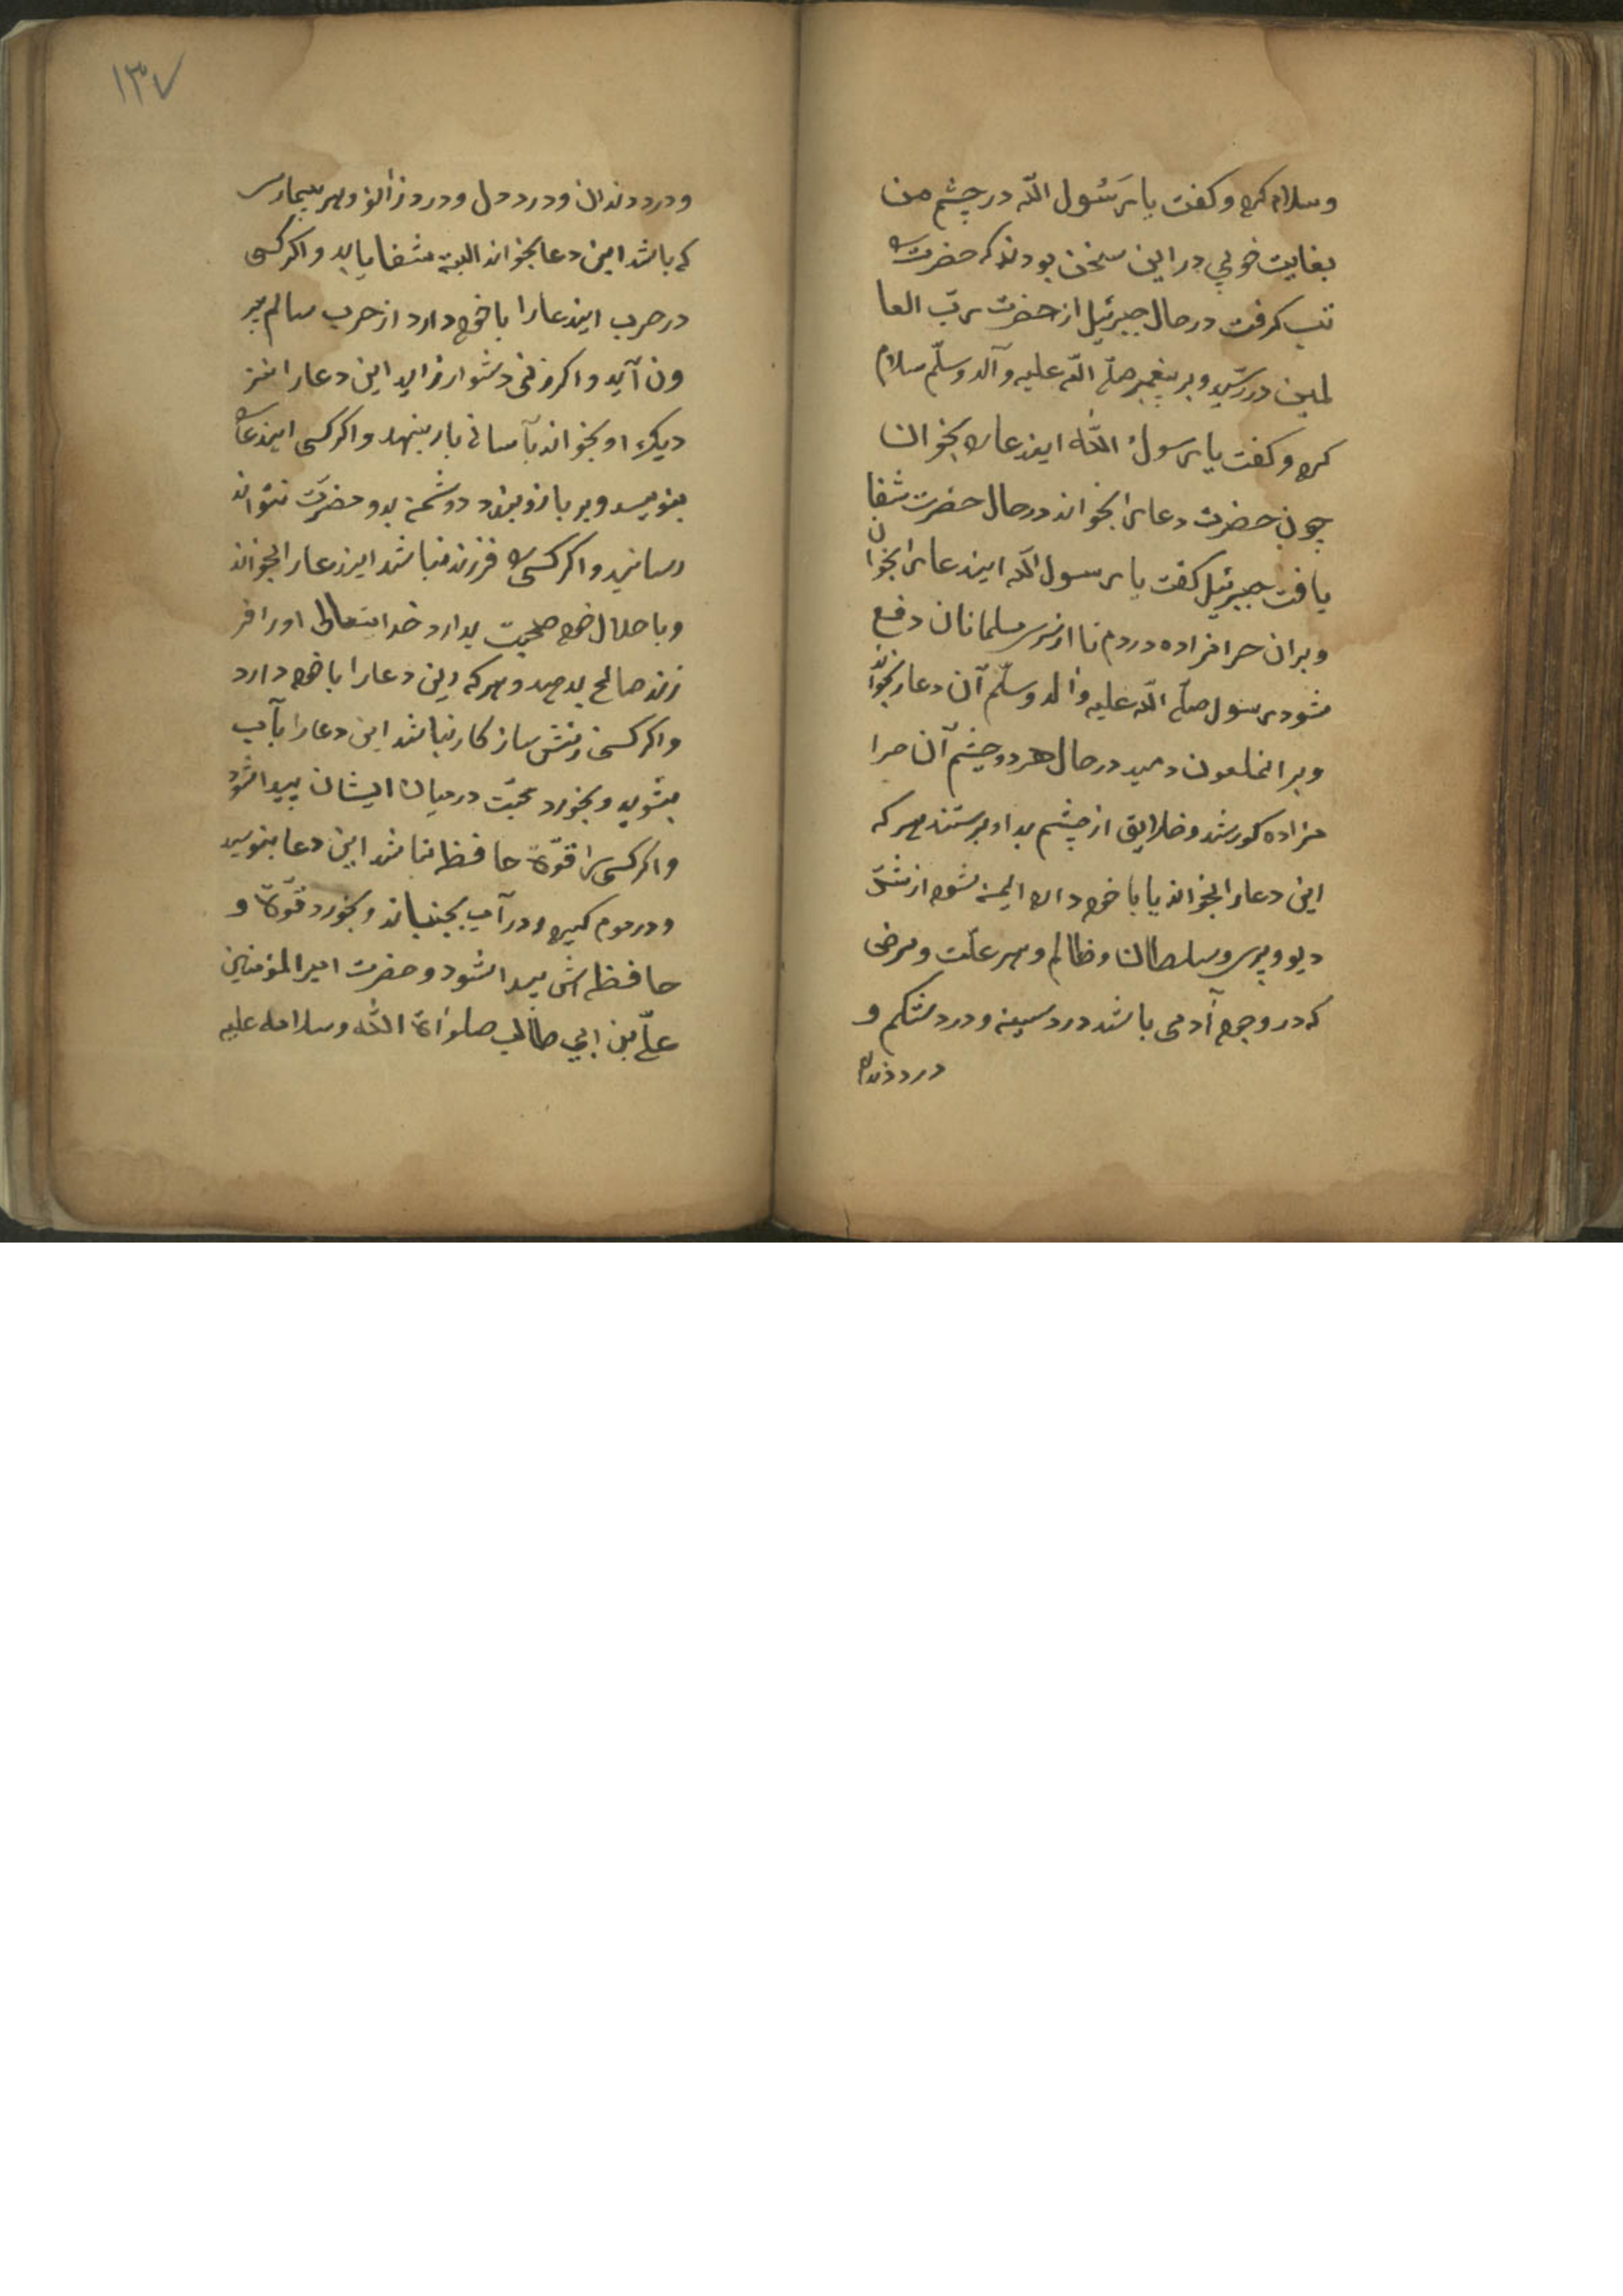 وسلام کرد و کفت یا رَسُول اللّه در چشم من
بغایت خوبی در این سخن بودند که حضرت را
تب کرفت در حال جبرئیل از حضرت ربّ العا
لمین در رسید و بر پیغمبر صلّی اللّه علیه و آله وسلّم سلام
کرد و کفت یا رسولُ اللّه ایندعا را بخوان
چون حضرت دعا را بخواند در حال حضرت شفا
یافت جبرئیل کفت یا رسول اللّه ایندعا را بخوان
و بران حرامزاده دردم تا از شر مسلمانان دفع
شود رسول صلّی اللّه علیه وآله وسلّم آن دعا را بخواند
و بر انملعون دمید در حال هر دو چشم آن حرا
مزاده کور شد و خلایق از چشم بد او برستند هر که
این دعا را بخواند یا با خود دارد ایمن شود از شرّ
دیو و پری و سلطان و ظالم و هر علّت و مرضی
که در وجود آدمی باشد درد سینه و درد شکم و
درد دندان
١٣٧
و درد دندان و درد دل و درد زانو و هر بیماری
که باشد این دعا بخواند البته شفا یابد و اکر کسی
در حرب ایندعا را با خود دارد از حرب سالم بیر
ون آید و اکر زنی دشوار زاید این دعا را نز
دیک او بخواند بآسانی بار بنهد و اکر کسی ایندعا را
بنویسد و بر بازو بندد دشمن بدو مضرّت نتواند
رسانید و اکر کسی را فرزند نباشد ایندعا را بخواند
و با حلال خود صحبت بدارد خدایتعالی او را فر
زند صالح بدهد و هر که این دعا را با خود دارد
و اکر کسی زنش سازکار نباشد این دعا را بآب
بشوید و بخورد محبّت در میان ایشان پیدا شود
و اکر کسی را قوّة حافظه نباشد این دعا بنویسد
و در موم کیرد و در آب بجنباند و بخورد قوّة و
حافظه اش پیدا شود و حضرت امیر المؤمنین
علیّ بن ابی طالب صلواة اللّه وسلامه علیه